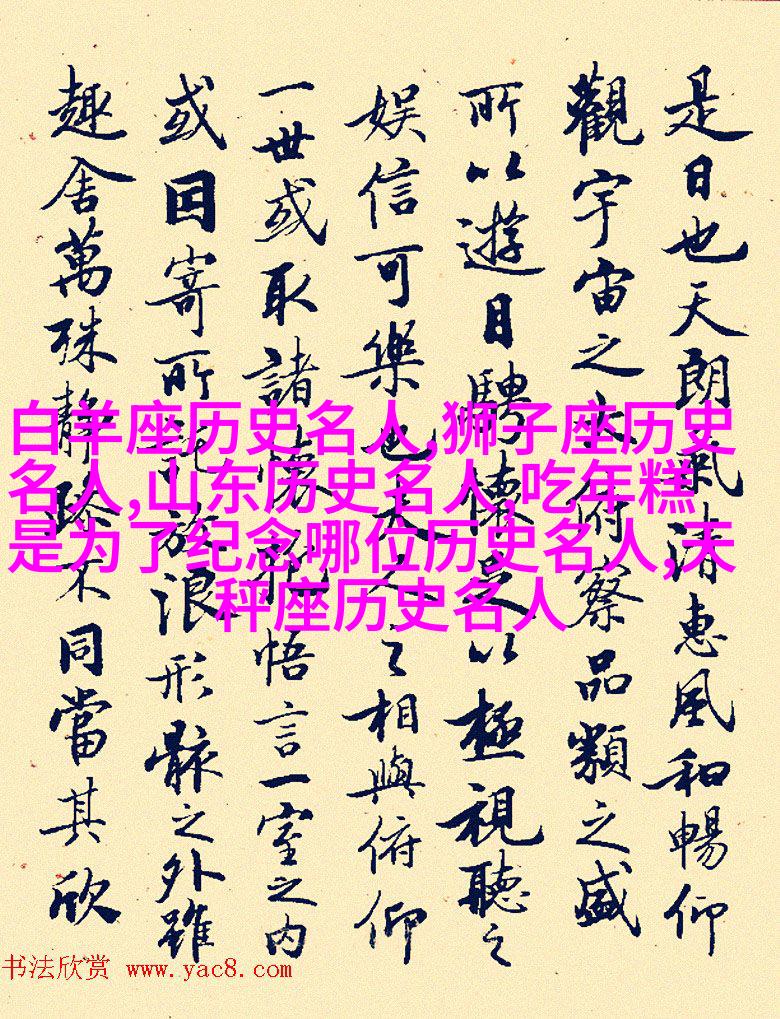 是日也天朗氣清惠風和暢仰
觀宇宙之大俯察品類之盛
所以遊目騁懷足以極視聽之
娱信可樂也夫人之相與俯仰
一世或取諸懷抱悟言一室之内
或因寄所託放浪形骸之外雖
趣舍萬殊静躁不同當其欣
白羊座历史名人,狮子座历史
名人,山东历史名人,吃年糕
是为了纪念哪位历史名人,天
秤座历史名人
书法欣赏 www.yac8.com